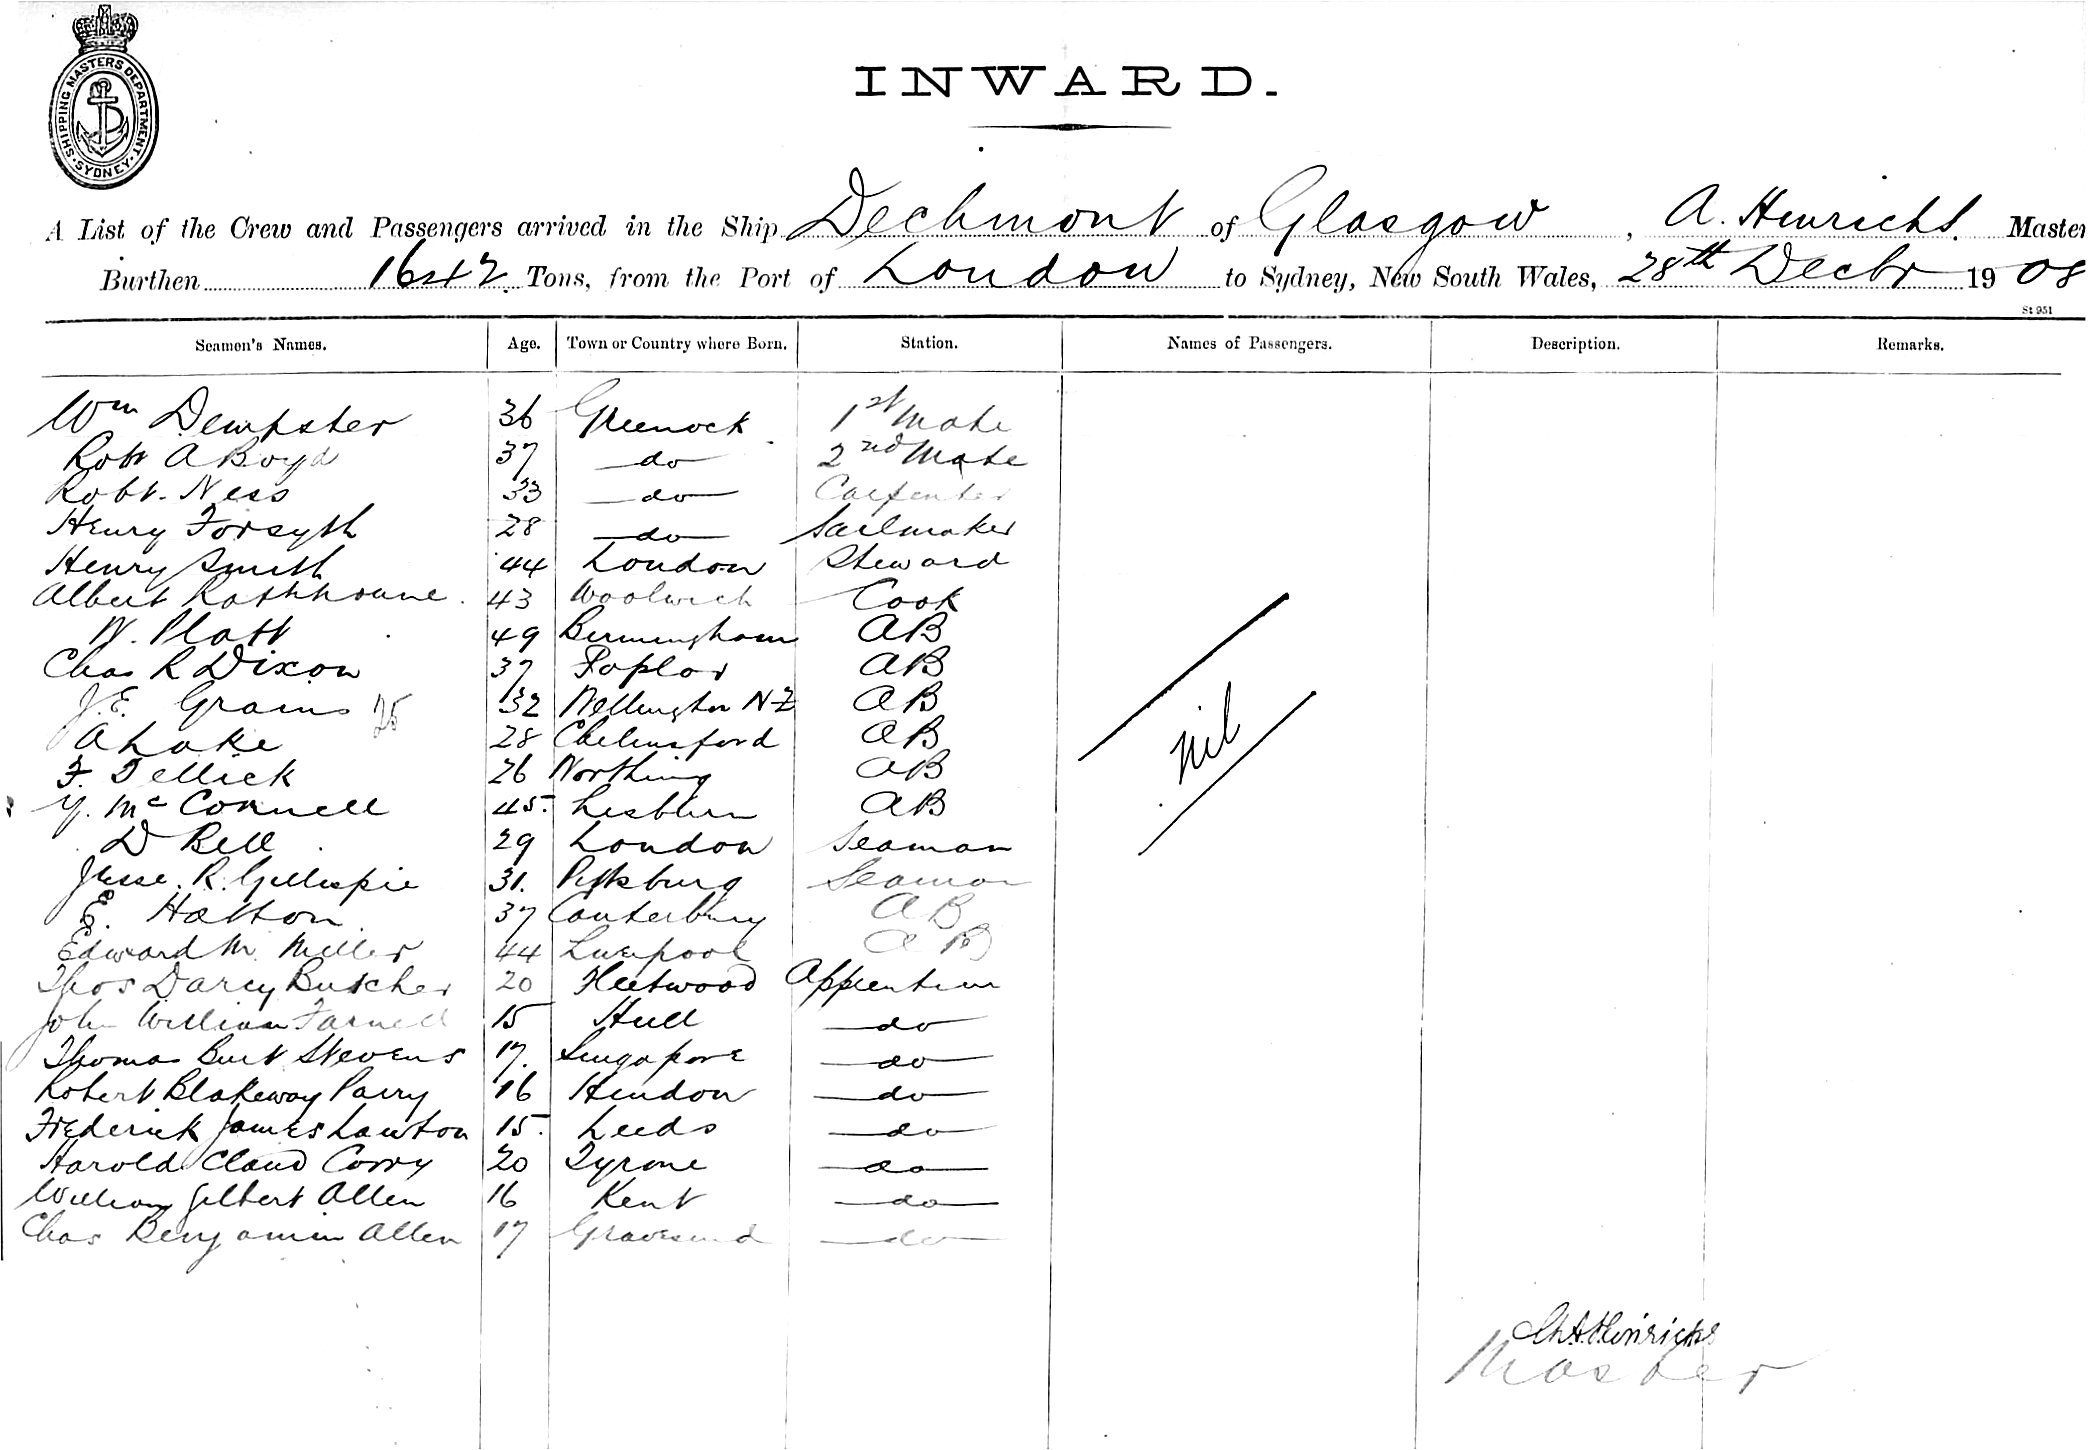 SHIPPING MASTERS DEPARTMENT. SYDNEY
INWARD.
A List of the Crew and Passengers arrived in the Ship Dechmont of Glasgow, A. Hinrichs. Master
Burthen 1642 Tons, from the Port of London to Sydney, New South Wales, 28th Decbr 1908
St 951
Seamen's Names. Age. Town or Country where Born. Station. Names of Passengers. Description. Remarks.
Wm Dempster 36 Greenock 1st Mate
Robt A Boyd 37 do 2nd Mate
Robt. Ness 33 do Carpenter
Henry Forsyth 28 do Sailmaker
Henry Smith 44 London Steward
Albert Rathbourne 43 Woolwich Cook
W. Platt 49 Birmingham AB
Chas R Dixon 37 Poplar AB
J.E. Grams 25 32 Wellington NZ AB
A Lake 28 Chelmsford AB
F. Tellick 26 Worthing AB
Y. McConnell 45 Lisburn AB
D Bell 29 London Seaman
Jesse. R. Gillespie 31. Pittsburg Seaman
E. Hatton 37 Canterbury AB
Edward M. Miller 44 Liverpool AB
Thos Darcy Butcher 20 Fleetwood Apprentice
John William Farnell 15 Hull do
Thomas Burt Stevens 17. Singapore do
Robert Blakeway Parry 16 Hendon do
Frederick James Lawton 15. Leeds do
Harold Claud Corry 20 Tyrone do
William Gilbert Allen 16 Kent do
Chas Benjamin Allen 17 Gravesend do
Nil
Hinrichs
Master